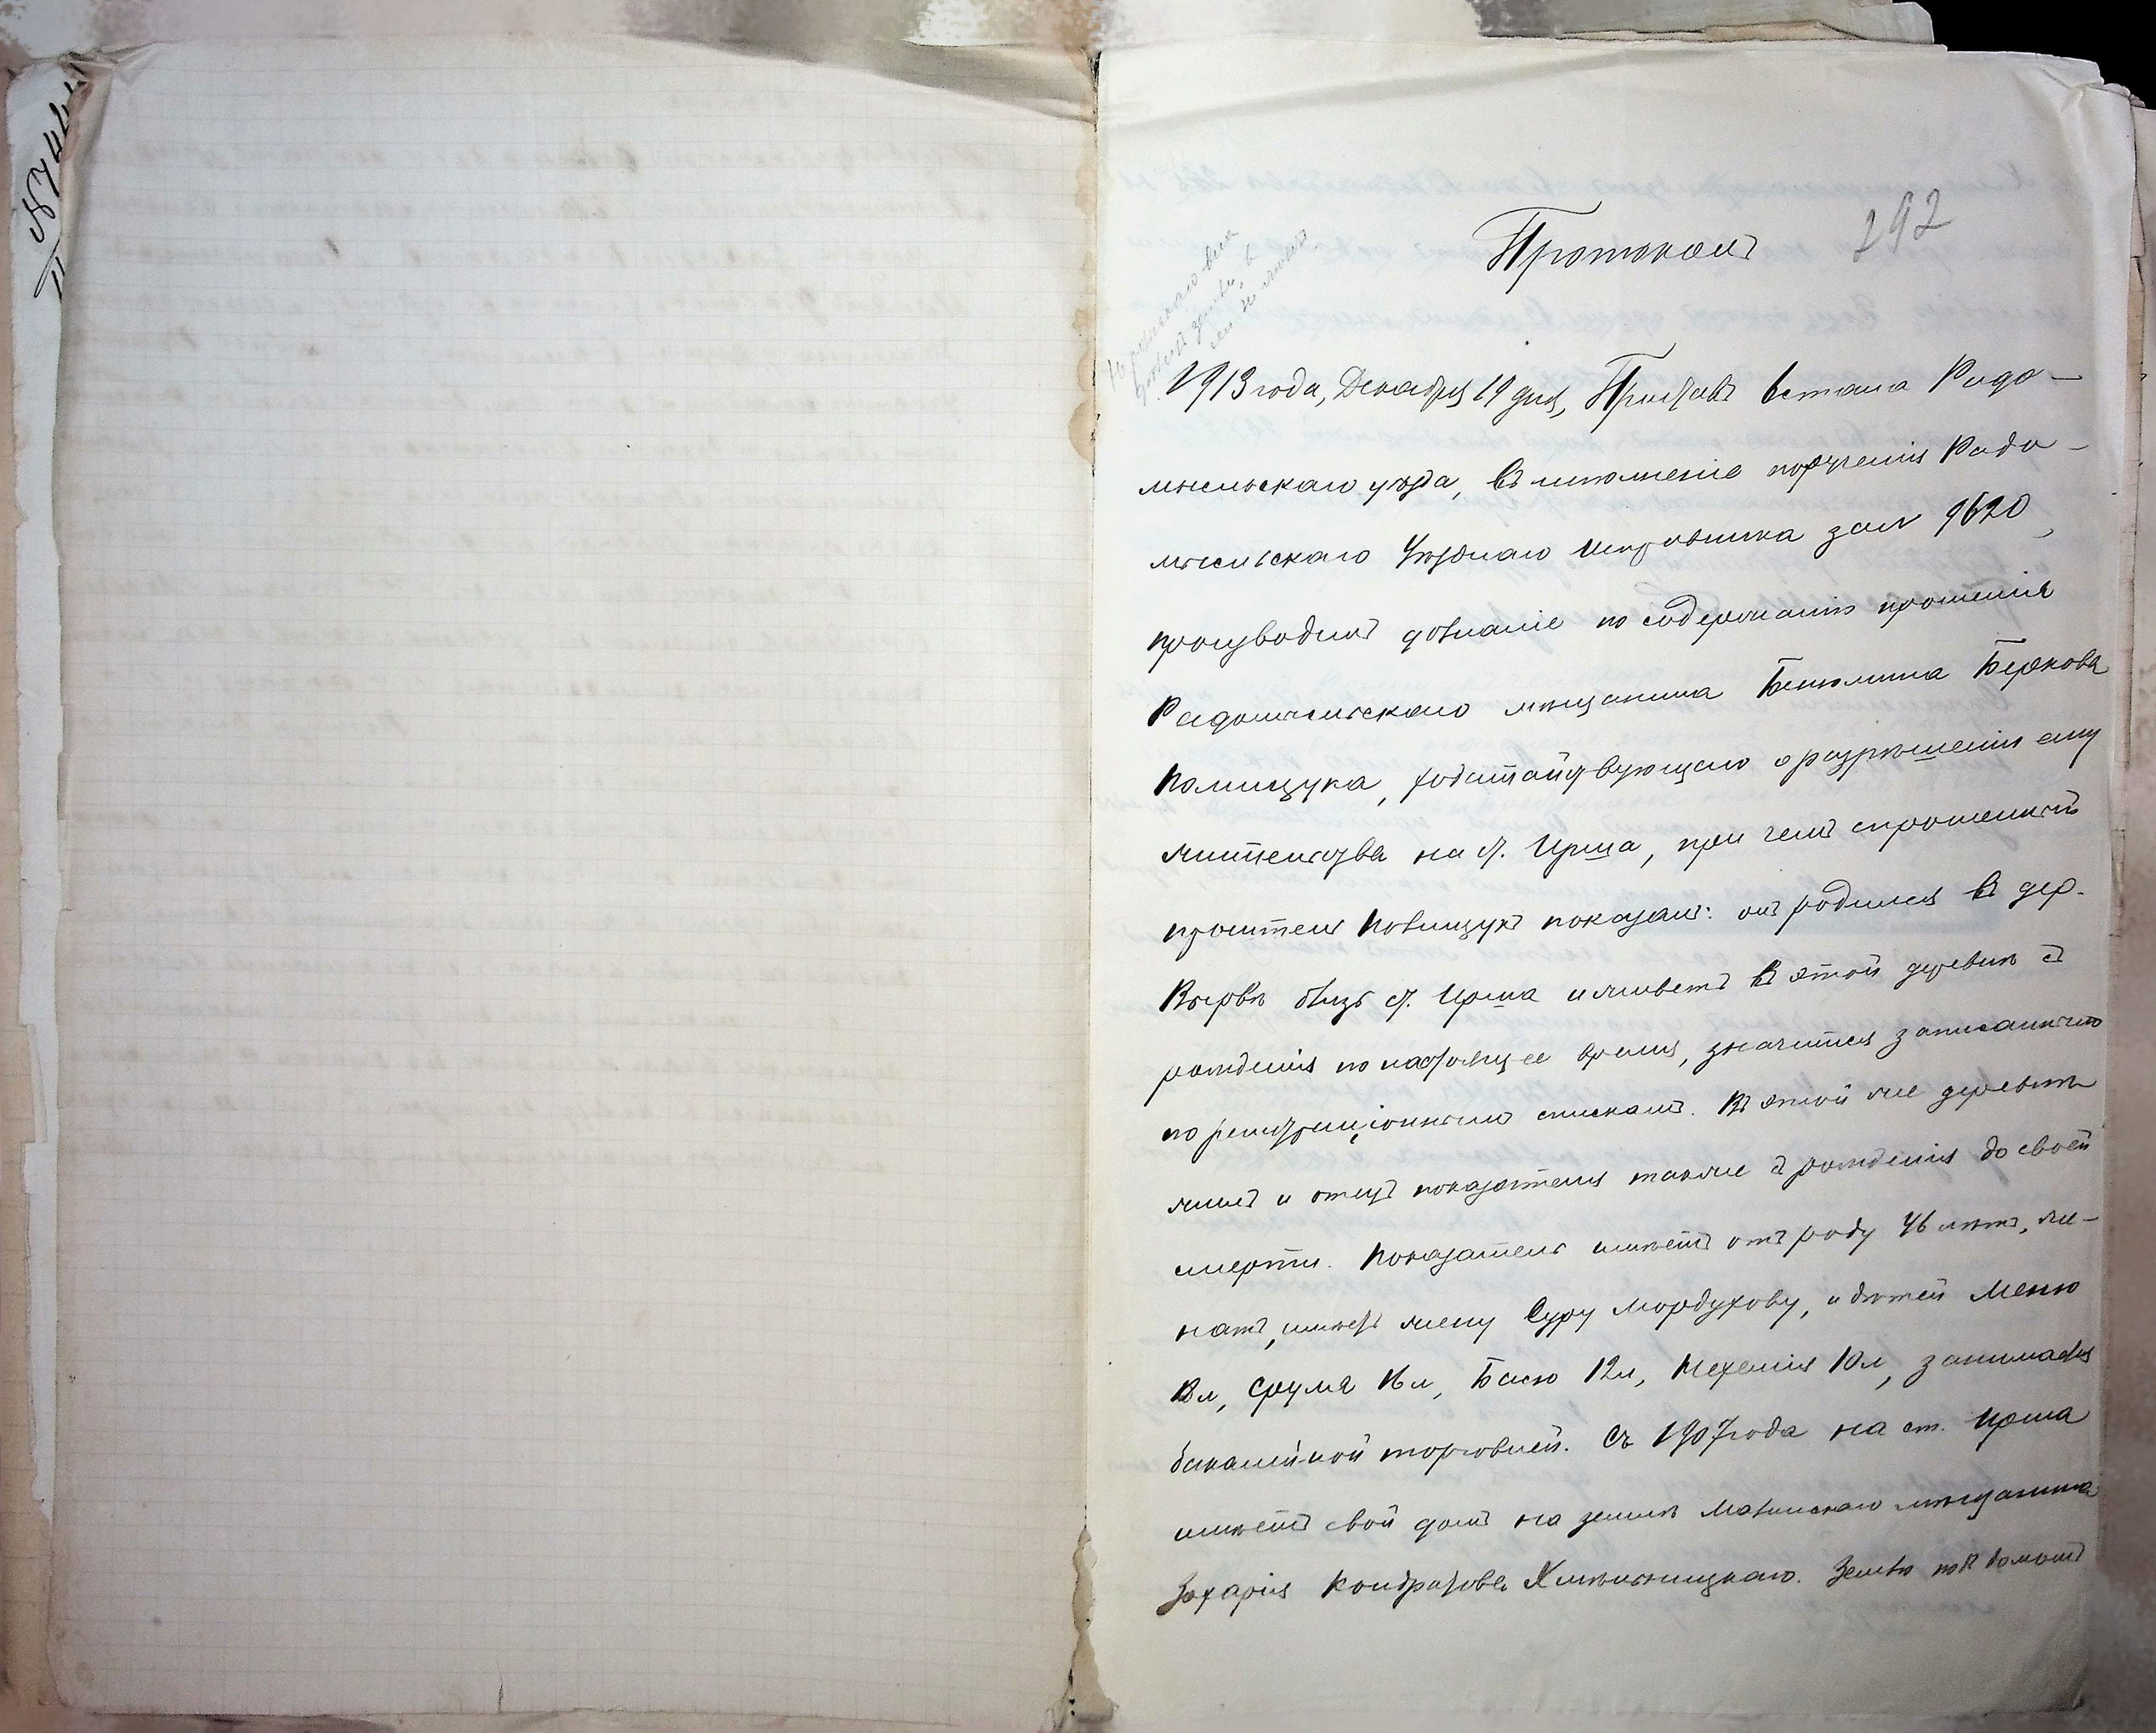 № 744
292
Протоколъ
1913 года, Декабря 19 дня, Приставъ 6 стана Радо-
мысльскаго уѣзда, въ исполненіе порученія Радо-
мысльскаго Уѣзднаго Исправника за № 9620,
производилъ дознаніе по содержанію прошенія
Радомысльскаго мѣщанина Беньямина Беркова
Полищука, ходатайствующаго о разрѣшеніи ему
жительства на ст. Ирша, при чемъ спрошенный
проситель Полищукъ показалъ: онъ родился въ дер.
Вырвѣ близъ ст. Ирша и живетъ въ этой деревнѣ съ
рожденія по настоящее время, значится записаннымъ
по регистраціоннымъ спискамъ. Въ этой же деревнѣ
жилъ и отецъ показателя также съ рожденія до своей
смерти. Показатель имѣетъ отъ роду 46 лѣтъ, же-
натъ, имѣетъ жену Суру Мордухову, и дѣтей Меню
18 л, Срумя 16 л, Басю 12 л, 10 л, занимается
бакалейной торговлей. Съ 1907 года на ст. Ирша
имѣетъ свой домъ на землѣ мѣщанина
Захарія Кондратова Хмѣльницкаго. Землю подъ домомъ